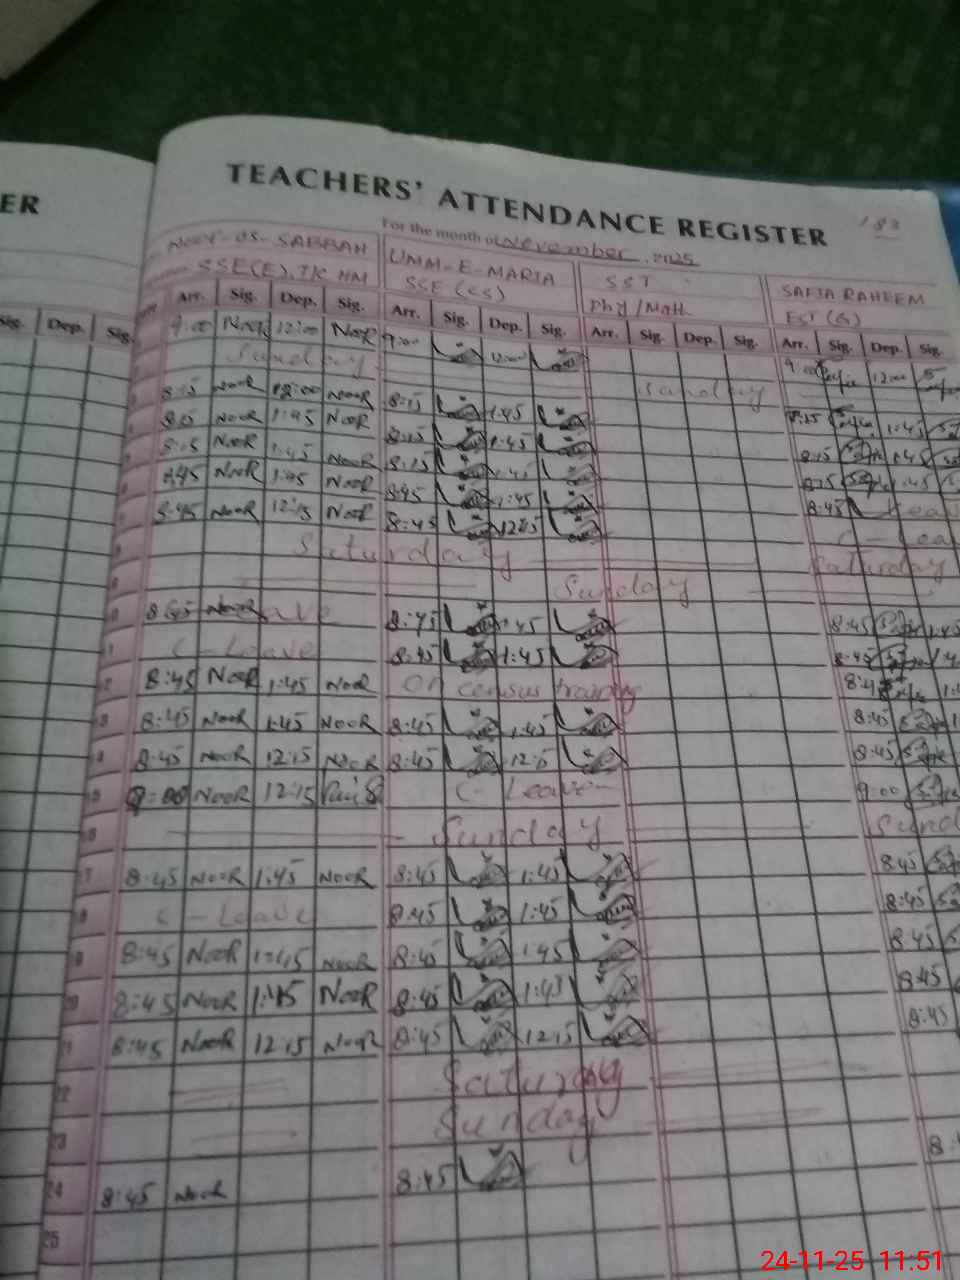 ER
TEACHERS' ATTENDANCE REGISTER
183
For the month of November, 2025
NOOR-US-SABBAH
UMM-E-MARIA
SST
SAFIA RAHEEM
SSE(E), I/C HM
SSE (CS)
Phy/Math
EST (G)
Sig. Dep. Sig.
Arr. Sig. Dep. Sig. Arr. Sig. Dep. Sig. Arr. Sig. Dep. Sig. Arr. Sig. Dep. Sig
9:00 NooR 12:00 NooR 9:00 12:00 9:00 12:00
Sunday Sunday
8:15 NooR 12:00 NooR 8:15 1:45 8:15 1:45
8:15 NooR 1:45 NooR 8:15 1:45 8:15 1:45
8:15 NooR 1:45 NooR 8:15 1:45 8:15 1:45
8:45 NooR 1:45 NooR 8:45 1:45 8:45 Leav
8:45 NooR 12:15 NooR 8:45 12:15 C-Lea
Saturday Saturday
Sunday
8:45 NooR 8:45 1:45 8:45 1:45
C-Leave 8:45 1:45 8:45 1:4
8:45 NooR 1:45 NooR On census training 8:45 1:
13 8:45 NooR 1:45 NooR 8:45 1:45 8:45 1
8:45 NooR 12:15 NooR 8:45 12:15 8:45
9:00 NooR 12:15 C-Leave 9:00
Sunday Sund
8:45 NooR 1:45 NooR 8:45 1:45 8:45
18 C-Leave 8:45 1:45 8:45
8:45 NooR 1:45 NooR 8:45 1:45 8:45
8:45 NooR 1:45 NooR 8:45 1:45 8:45
8:45 NooR 12:15 NooR 8:45 12:15 8:45
22 Saturday
23 Sunday
24 8:45 NooR 8:45 8:
25
24-11-25 11:51